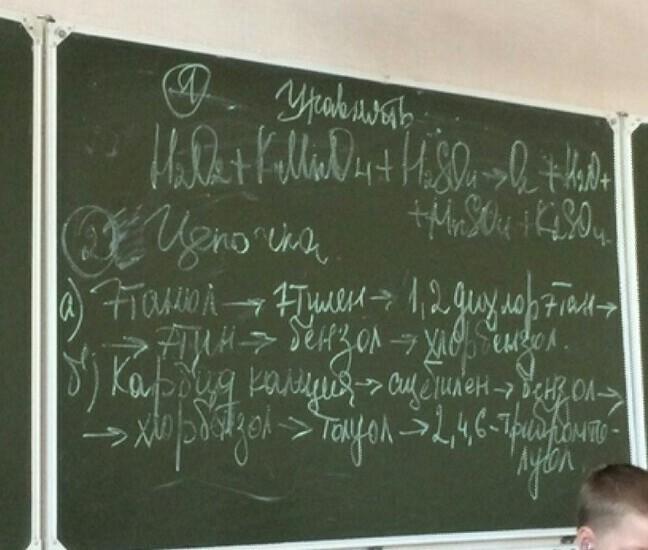 1 Уравнять
H2O2 + KMnO4 + H2SO4 → O2 + H2O +
+ MnSO4 + K2SO4
2 Цепочка
а) Этанол → Этилен → 1,2 дихлорэтан →
→ Этин → бензол → хлорбензол.
б) Карбид кальция → ацетилен → бензол →
→ хлорбензол → толуол → 2,4,6-трибромто-
луол